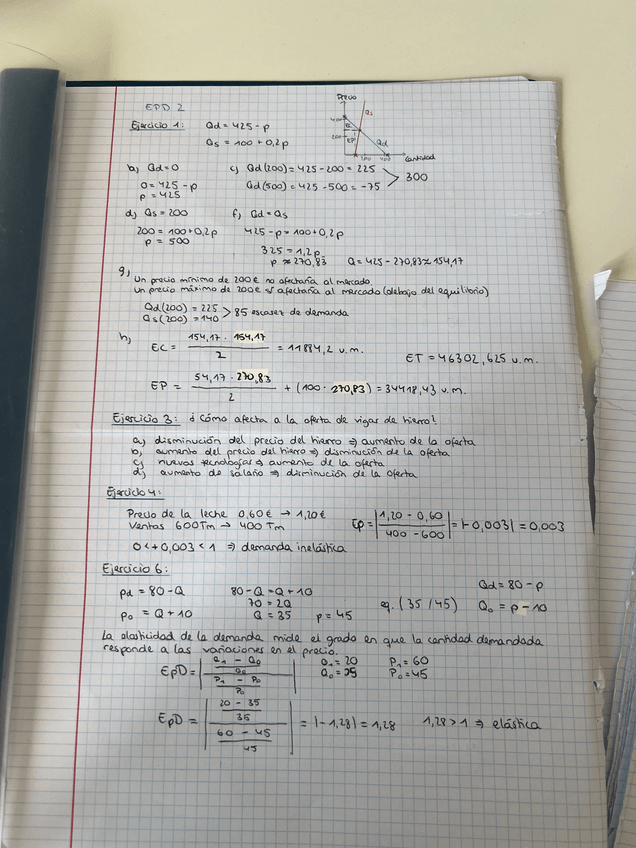 EPD 2
Ejercicio 1: Qd = 425 - p
Qs = 100 + 0,2p
Precio
400
200
Qs
EC
EP
Qd
200 400
Cantidad
b) Qd = 0
0 = 425 - p
p = 425
c) Qd (200) = 425 - 200 = 225
Qd (500) = 425 - 500 = -75
300
d) Qs = 200
200 = 100 + 0,2p
p = 500
f) Qd = Qs
425 - p = 100 + 0,2p
325 = 1,2p
p ≈ 270,83 Q = 425 - 270,83 ≈ 154,17
g)
Un precio mínimo de 200€ no afectaría al mercado
Un precio máximo de 200€ sí afectaría al mercado (debajo del equilibrio)
Qd (200) = 225
Qs (200) = 140
> 85 escasez de demanda
h) EC = 154,17 · 154,17 / 2 = 11884,2 u.m.
ET = 46302,625 u.m.
EP = 54,17 · 270,83 / 2 + (100 · 270,83) = 34418,43 u.m.
Ejercicio 3: ¿Cómo afecta a la oferta de vigas de hierro?
a) disminución del precio del hierro ⇒ aumento de la oferta
b) aumento del precio del hierro ⇒ disminución de la oferta
c) nuevas tecnologías ⇒ aumento de la oferta
d) aumento de salario ⇒ disminución de la oferta
Ejercicio 4:
Precio de la leche 0,60€ → 1,20€
Ventas 600Tm → 400 Tm
Ep = | 1,20 - 0,60 / 400 - 600 | = |-0,003| = 0,003
0 < +0,003 < 1 ⇒ demanda inelástica
Ejercicio 6:
pd = 80 - Q
po = Q + 10
80 - Q = Q + 10
70 = 2Q
Q = 35 p = 45
eq. (35 / 45)
Qd = 80 - p
Qo = p - 10
La elasticidad de la demanda mide el grado en que la cantidad demandada
responde a las variaciones en el precio.
EpD = | Q1 - Q0 / Q0 / P1 - P0 / P0 |
Q1 = 20 P1 = 60
Q0 = 35 P0 = 45
EpD = | 20 - 35 / 35 / 60 - 45 / 45 | = |-1,28| = 1,28 1,28 > 1 ⇒ elástica